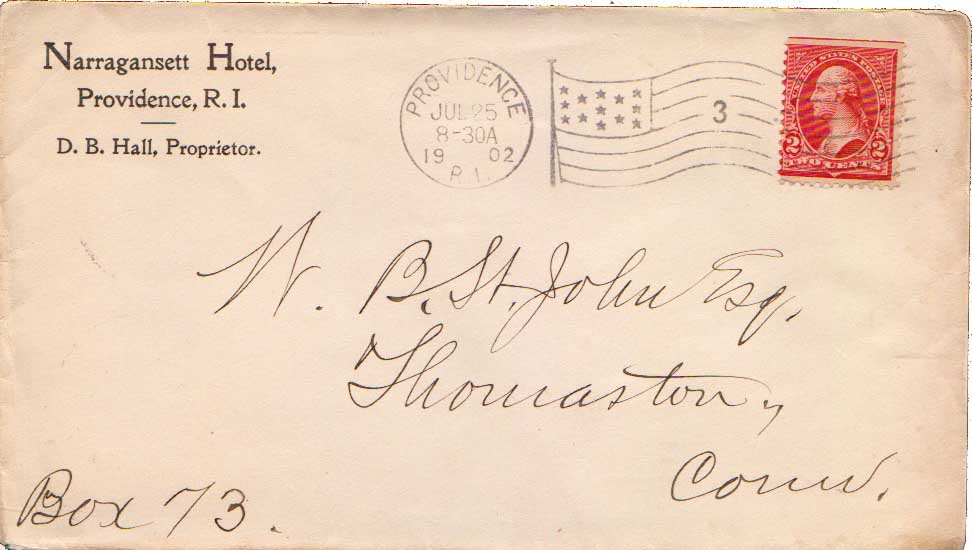 Narragansett Hotel,
Providence, R. I.
D. B. Hall, Proprietor.
PROVIDENCE
JUL 25
8-30A
19 02
R.I.
3
UNITED STATES POSTAGE
2 2
TWO CENTS
W. B. St. John Esq.
Thomaston,
Conn.
Box 73.